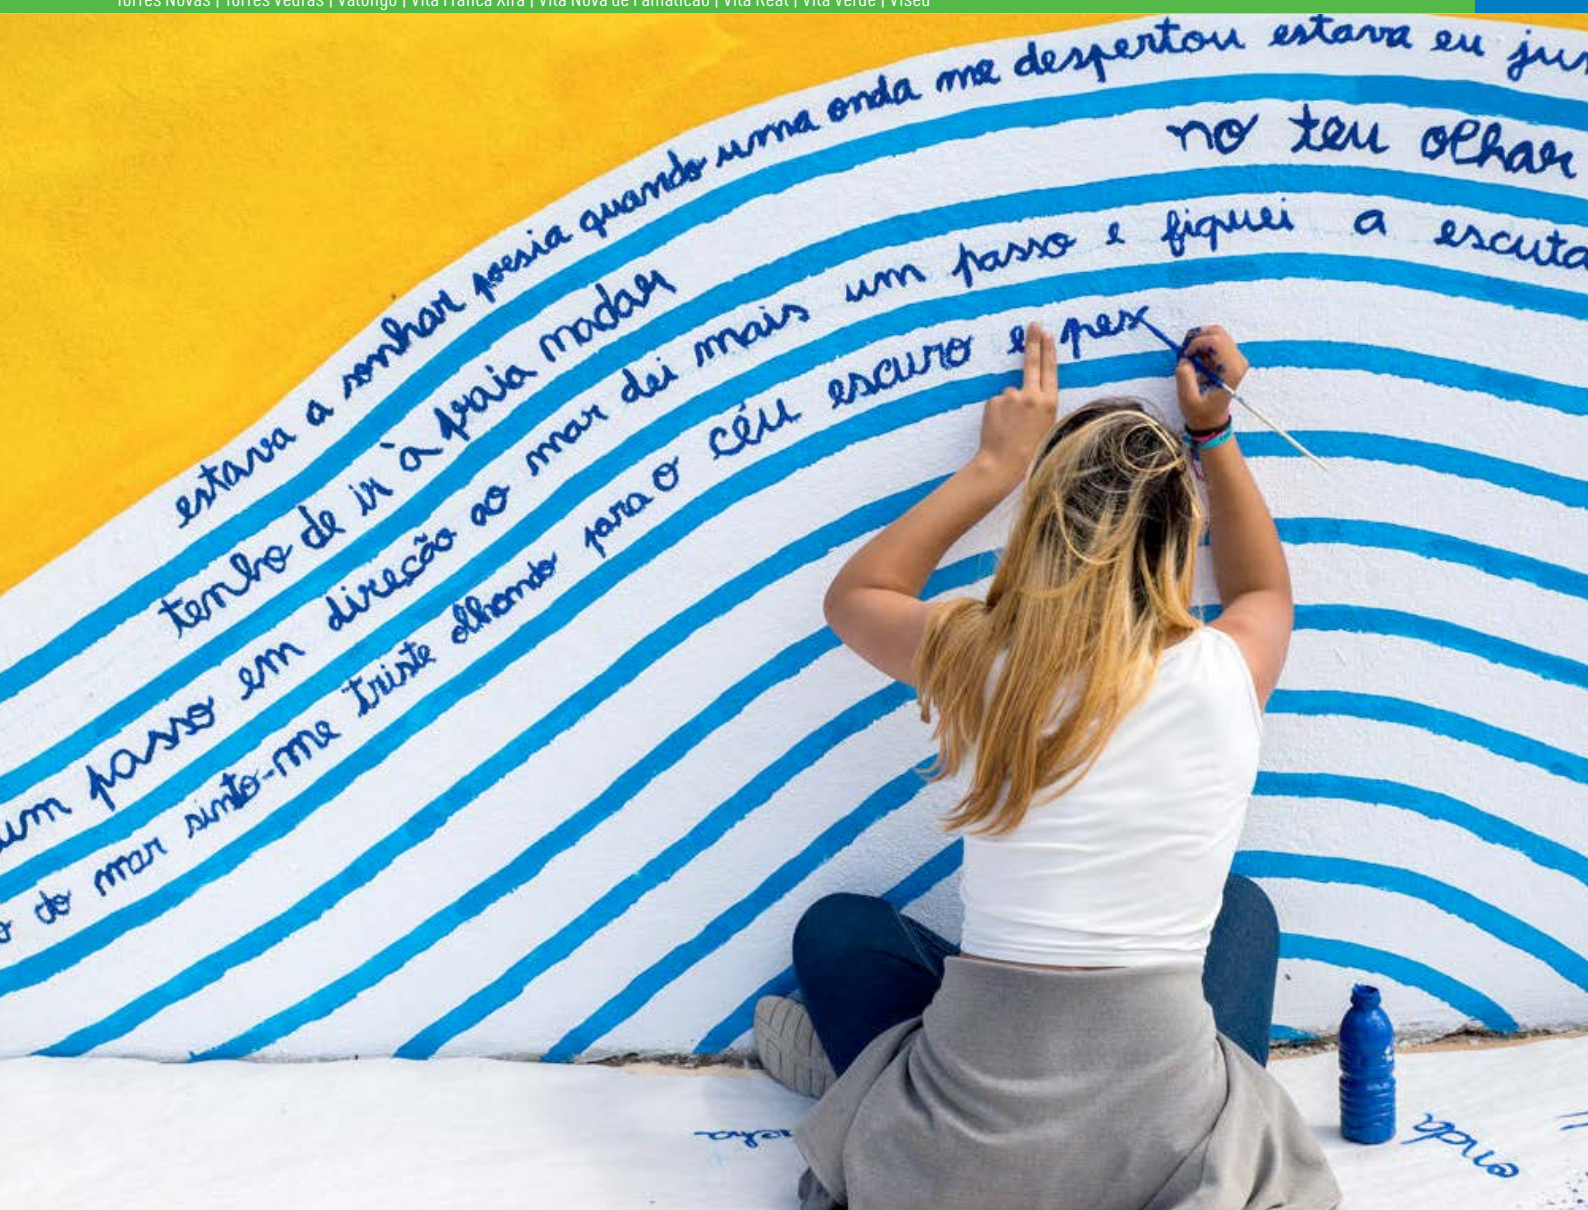 Torres Novas | Torres Vedras | Valongo | Vila Franca Xira | Vila Nova de Famalicão | Vila Real | Vila Verde | Viseu
estava a sonhar poesia quando uma onda me despertou estava eu
tenho de ir à praia nadar no teu olhar
um passo em direcão ao mar dei mais um passo e fiquei a escuta
do mar sinto-me triste olhando para o céu escuro e pes
onda